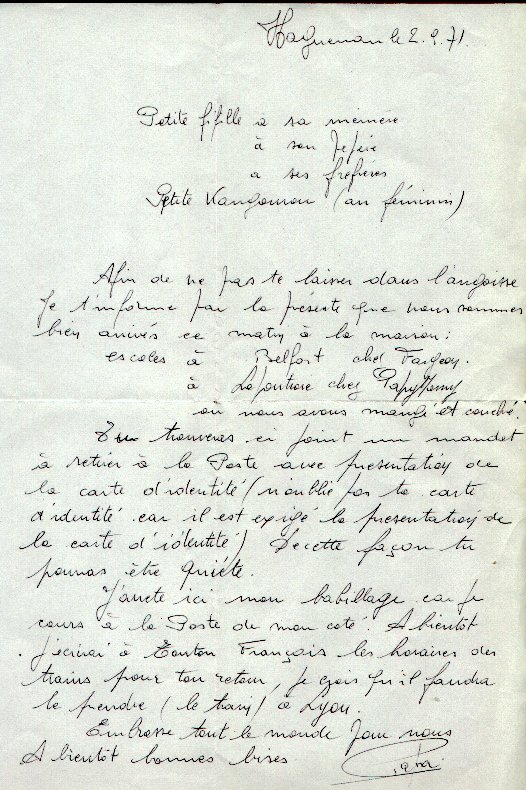 Haguenau le 2.9.71.
Petite fifille à sa mémère
à son pépère
à ses fréfrères
Petite Kangourou (au féminin)
Afin de ne pas te laisser dans l'angoisse
Je t'informe par la présente que nous sommes
bien arrivés ce matin à la maison :
escales à Belfort chez
à chez Papy Mamy
où nous avons mangé et couché.
Tu trouveras ci joint un mandat
à retirer à la Poste avec présentation de
la carte d'identité (n'oublie pas ta carte
d'identité car il est exigé la présentation de
la carte d'identité) De cette façon tu
pourras être quiète.
J'arrête ici mon babillage car je
cours à la Poste de mon coté. A bientôt
J'écrirai à Tonton François les horaires des
trains pour ton retour, Je crois qu'il faudra
le prendre (le train) à Lyon.
Embrasse tout le monde pour nous
A bientôt bonnes bises.